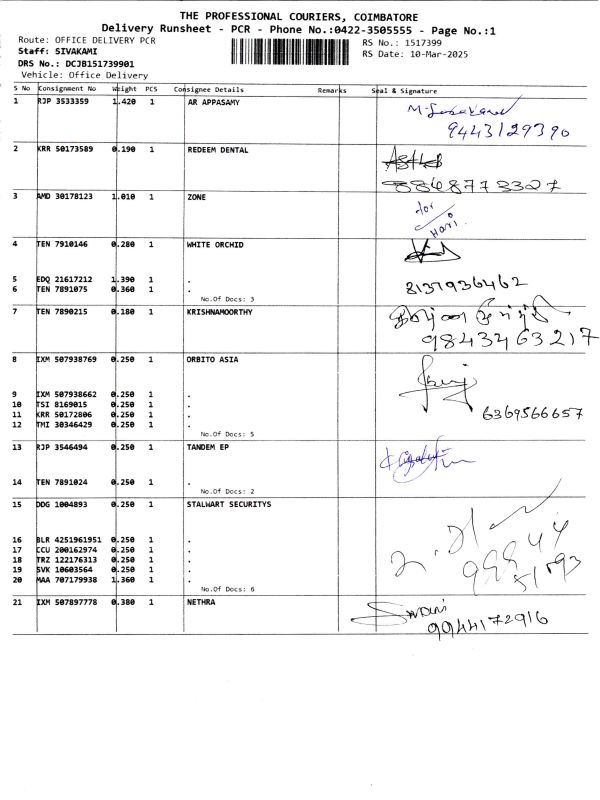 THE PROFESSIONAL COURIERS, COIMBATORE
Delivery Runsheet - PCR - Phone No.:0422-3505555 - Page No.:1
Route: OFFICE DELIVERY PCR
RS No.: 1517399
Staff: SIVAKAMI
RS Date: 10-Mar-2025
DRS No.: DCJB151739901
Vehicle: Office Delivery
S No Consignment No Weight PCS Consignee Details Remarks Seal & Signature
1 RJP 3533359 1.420 1 AR APPASAMY
9443129390
2 KRR 50173589 0.190 1 REDEEM DENTAL
8848773327
3 AMD 30178123 1.010 1 ZONE
for
Hari
4 TEN 7910146 0.280 1 WHITE ORCHID
5 EDQ 21617212 1.390 1 .
8137936462
6 TEN 7891075 0.360 1 .
No.Of Docs: 3
7 TEN 7890215 0.180 1 KRISHNAMOORTHY
9843463217
8 IXM 507938769 0.250 1 ORBITO ASIA
9 IXM 507938662 0.250 1 .
10 TSI 8169015 0.250 1 .
11 KRR 50172806 0.250 1 .
6369566657
12 TMI 30346429 0.250 1 .
No.Of Docs: 5
13 RJP 3546494 0.250 1 TANDEM EP
14 TEN 7891024 0.250 1 .
No.Of Docs: 2
15 DDG 1004893 0.250 1 STALWART SECURITYS
16 BLR 4251961951 0.250 1 .
17 CCU 200162974 0.250 1 .
18 TRZ 122176313 0.250 1 .
19 SVK 10603564 0.250 1 .
20 MAA 707179938 1.360 1 .
No.Of Docs: 6
21 IXM 507897778 0.380 1 NETHRA
9944172916